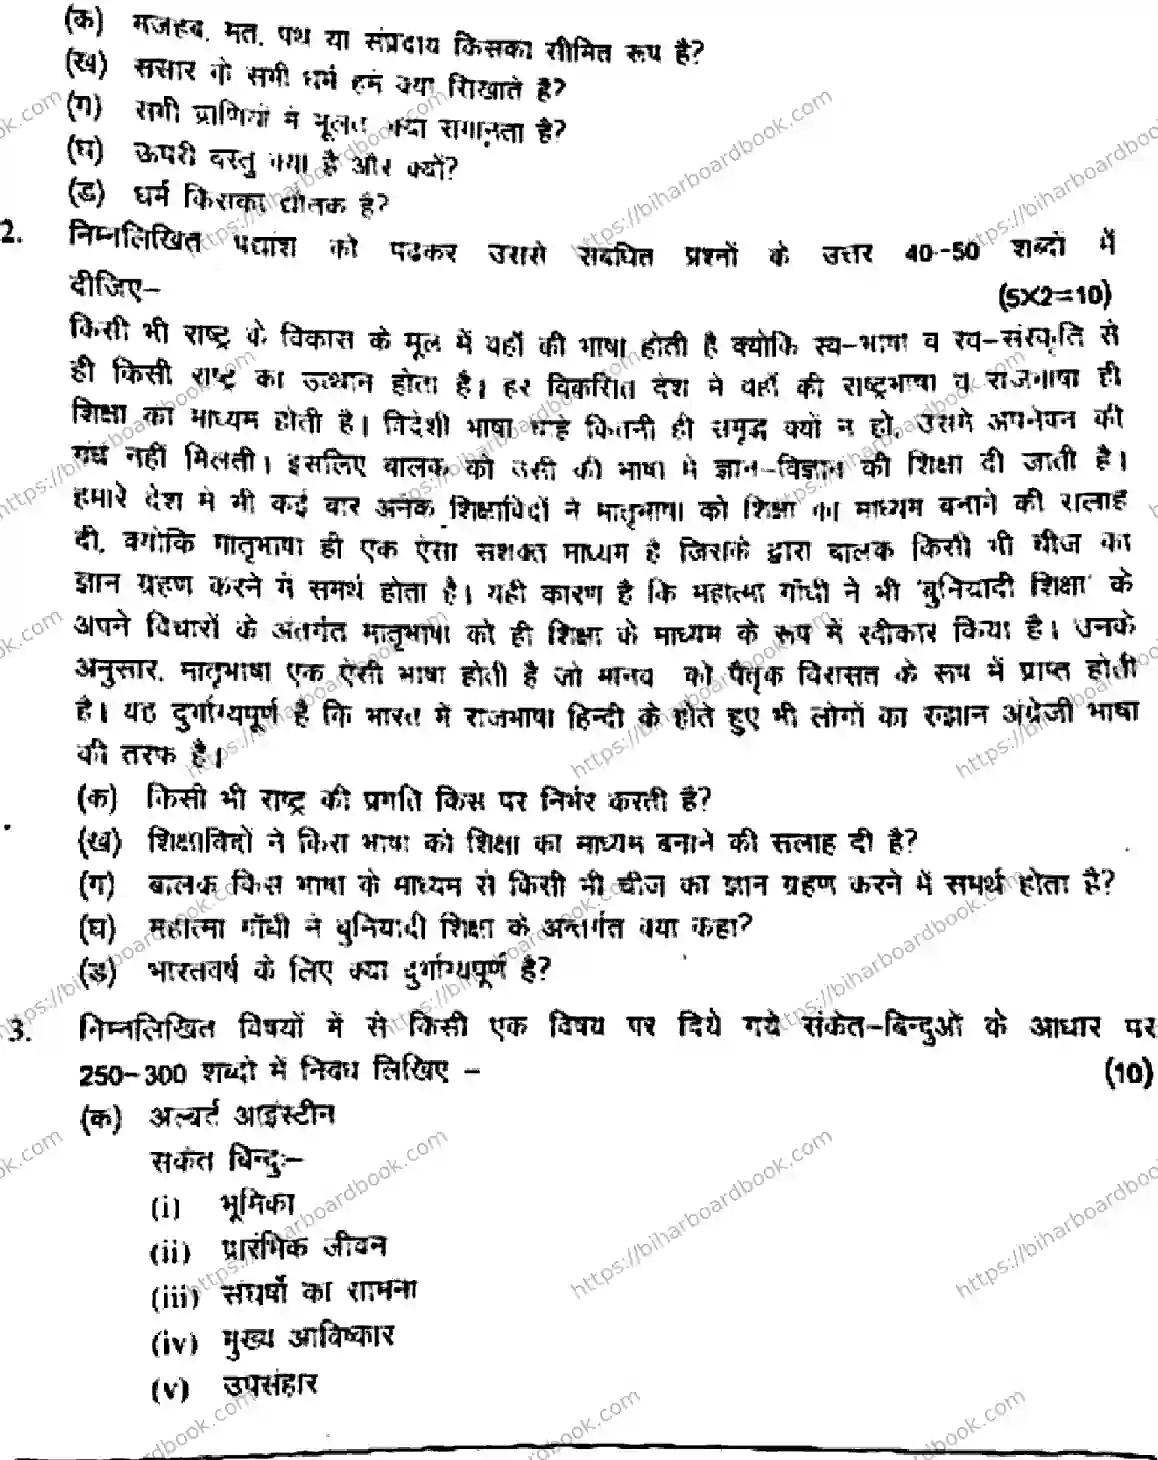 (क) मजहब, मत, पंथ या संप्रदाय किसका सीमित रूप है?
(ख) संसार के सभी धर्म हमें क्या सिखाते हैं?
(ग) सभी प्राणियों में मूलतः क्या समानता है?
(घ) ऊपरी वस्तु क्या है और क्यों?
(ड) धर्म किसका द्योतक है?
2. निम्नलिखित पद्यांश को पढकर उससे संबंधित प्रश्नों के उत्तर 40-50 शब्दों में
दीजिए– (5X2=10)
किसी भी राष्ट्र के विकास के मूल में वहाँ की भाषा होती है क्योंकि स्व–भाषा व स्व–संस्कृति से
ही किसी राष्ट्र का उत्थान होता है। हर विकसित देश में वहाँ की राष्ट्रभाषा व राजभाषा ही
शिक्षा का माध्यम होती है। विदेशी भाषा चाहे कितनी ही समृद्ध क्यों न हो, उसमें अपनेपन की
गंध नहीं मिलती। इसलिए बालक को उसी की भाषा में ज्ञान–विज्ञान की शिक्षा दी जाती है।
हमारे देश में भी कई बार अनेक शिक्षाविदों ने मातृभाषा को शिक्षा का माध्यम बनाने की सलाह
दी, क्योंकि मातृभाषा ही एक ऐसा सशक्त माध्यम है जिसके द्वारा बालक किसी भी चीज का
ज्ञान ग्रहण करने में समर्थ होता है। यही कारण है कि महात्मा गाँधी ने भी 'बुनियादी शिक्षा' के
अपने विचारों के अंतर्गत मातृभाषा को ही शिक्षा के माध्यम के रूप में स्वीकार किया है। उनके
अनुसार, मातृभाषा एक ऐसी भाषा होती है जो मानव को पैतृक विरासत के रूप में प्राप्त होती
है। यह दुर्भाग्यपूर्ण है कि भारत में राजभाषा हिन्दी के होते हुए भी लोगों का रुझान अंग्रेजी भाषा
की तरफ है।
(क) किसी भी राष्ट्र की प्रगति किस पर निर्भर करती है?
(ख) शिक्षाविदों ने किस भाषा को शिक्षा का माध्यम बनाने की सलाह दी है?
(ग) बालक किस भाषा के माध्यम से किसी भी चीज का ज्ञान ग्रहण करने में समर्थ होता है?
(घ) महात्मा गाँधी ने बुनियादी शिक्षा के अन्तर्गत क्या कहा?
(ड) भारतवर्ष के लिए क्या दुर्भाग्यपूर्ण है?
3. निम्नलिखित विषयों में से किसी एक विषय पर दिये गये संकेत–बिन्दुओं के आधार पर
250–300 शब्दों में निबंध लिखिए – (10)
(क) अल्बर्ट आइंस्टीन
संकेत बिन्दुः–
(i) भूमिका
(ii) प्रारंभिक जीवन
(iii) संघर्षों का सामना
(iv) मुख्य आविष्कार
(v) उपसंहार
https://biharboardbook.com